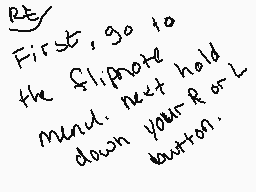 RE
First, go to
the flipnote
menu. next hold
down your R or L
button.